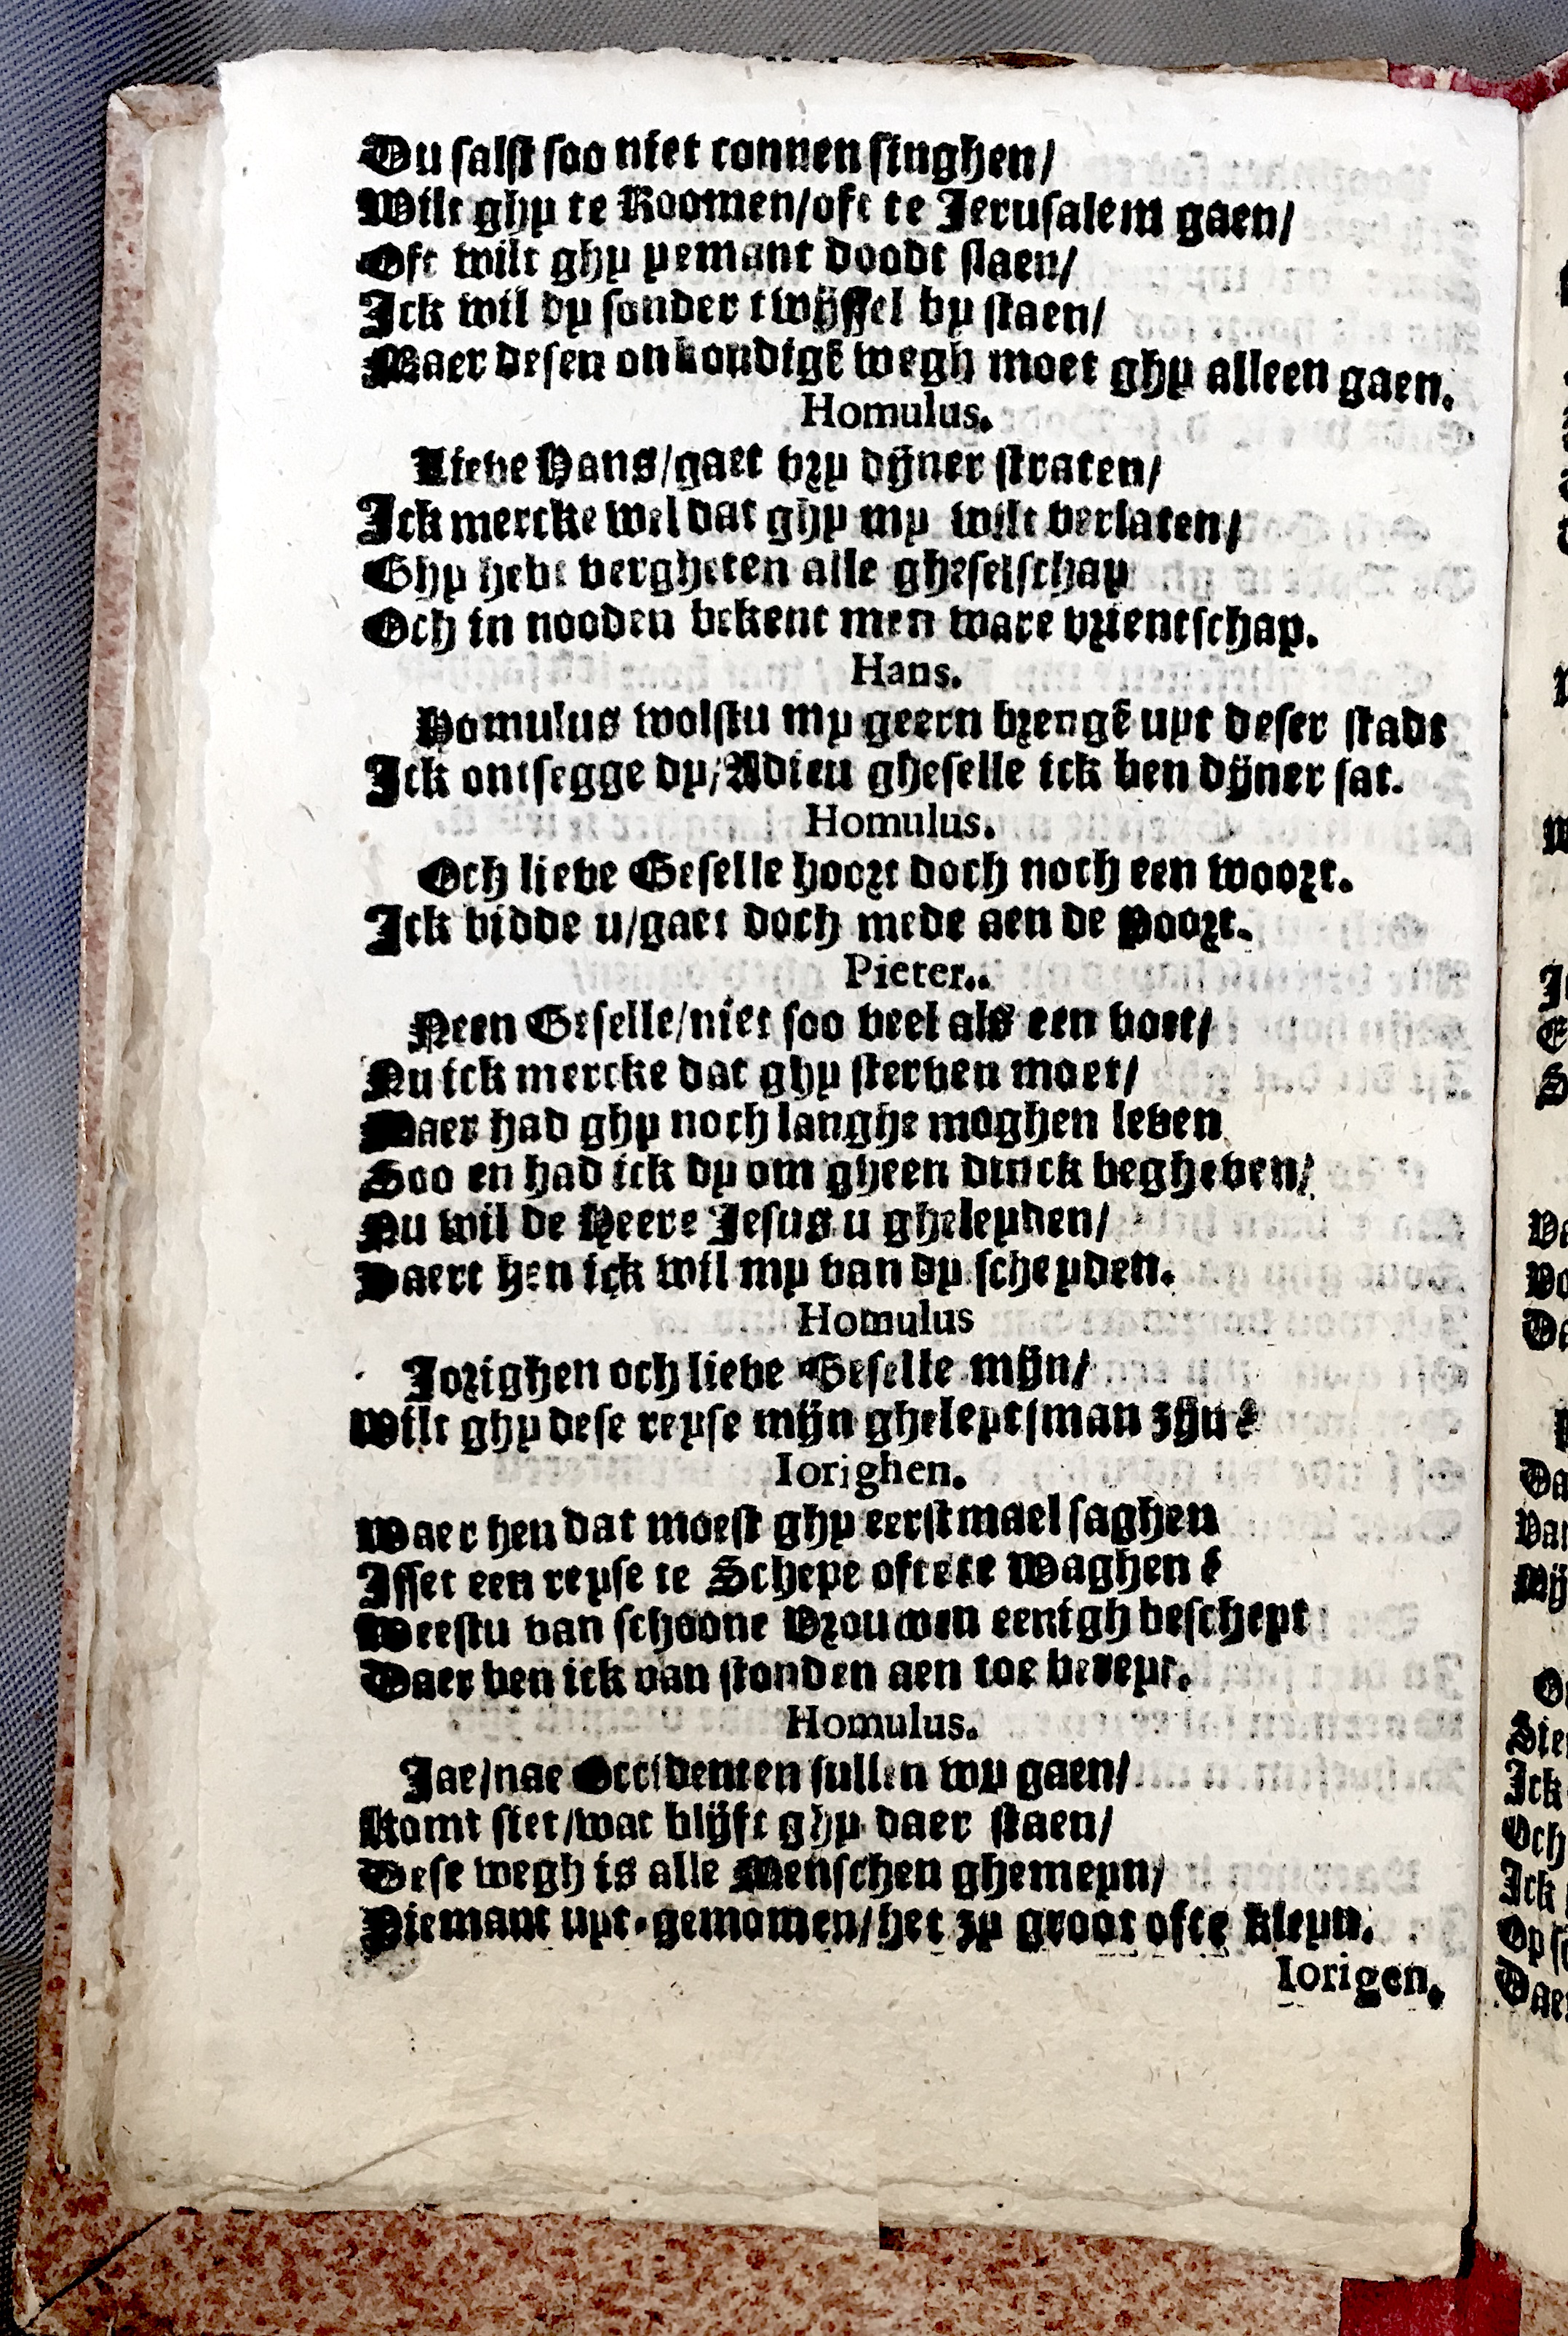 Du salst soo niet connen singhen/
Wilt ghy te Roomen/oft te Jerusalem gaen/
Oft wilt ghy yemant doodt slaen/
Ick wil dy sonder twijffel by staen/
Maer desen onkondigē wegh moet ghy alleen gaen.
Homulus.
Lieve Hans/gaet vry dijner straten/
Ick mercke wel dat ghy my wilt verlaten/
Ghy hebt vergheten alle gheselschap
Och in nooden bekent men ware vrientschap.
Hans.
Homulus wolstu my geern brengē uyt deser stadt
Ick ontsegge dy/Adieu gheselle ick ben dijner sat.
Homulus.
Och lieve Geselle hoort doch noch een woort.
Ick bidde u/gaet doch mede aen de Poort.
Pieter..
Neen Geselle/niet soo veel als een voet/
Nu ick mercke dat ghy sterven moet/
Maer had ghy noch langhe moghen leven
Soo en had ick dy om gheen dinck begheven/
Nu wil de Heere Jesus u gheleyden/
Daert hen ick wil my van dy scheyden.
Homulus
Jorighen och lieve Geselle mijn/
Wilt ghy dese reyse mijn gheleytsman zijn?
Iorighen.
Waer hen dat moest ghy eerstmael saghen
Isset een reyse te Schepe ofte te Waghen?
Weestu van schoone Vrouwen eenigh bescheyt
Daer ben ick van stonden aen toe bereyt.
Homulus.
Jae/nae Occidenten sullen wy gaen/
Komt siet/wat blijft ghy daer staen/
Dese wegh is alle Menschen ghemeyn/
Niemant uyt-genomen/het zy groot ofte kleyn.
Iorigen.